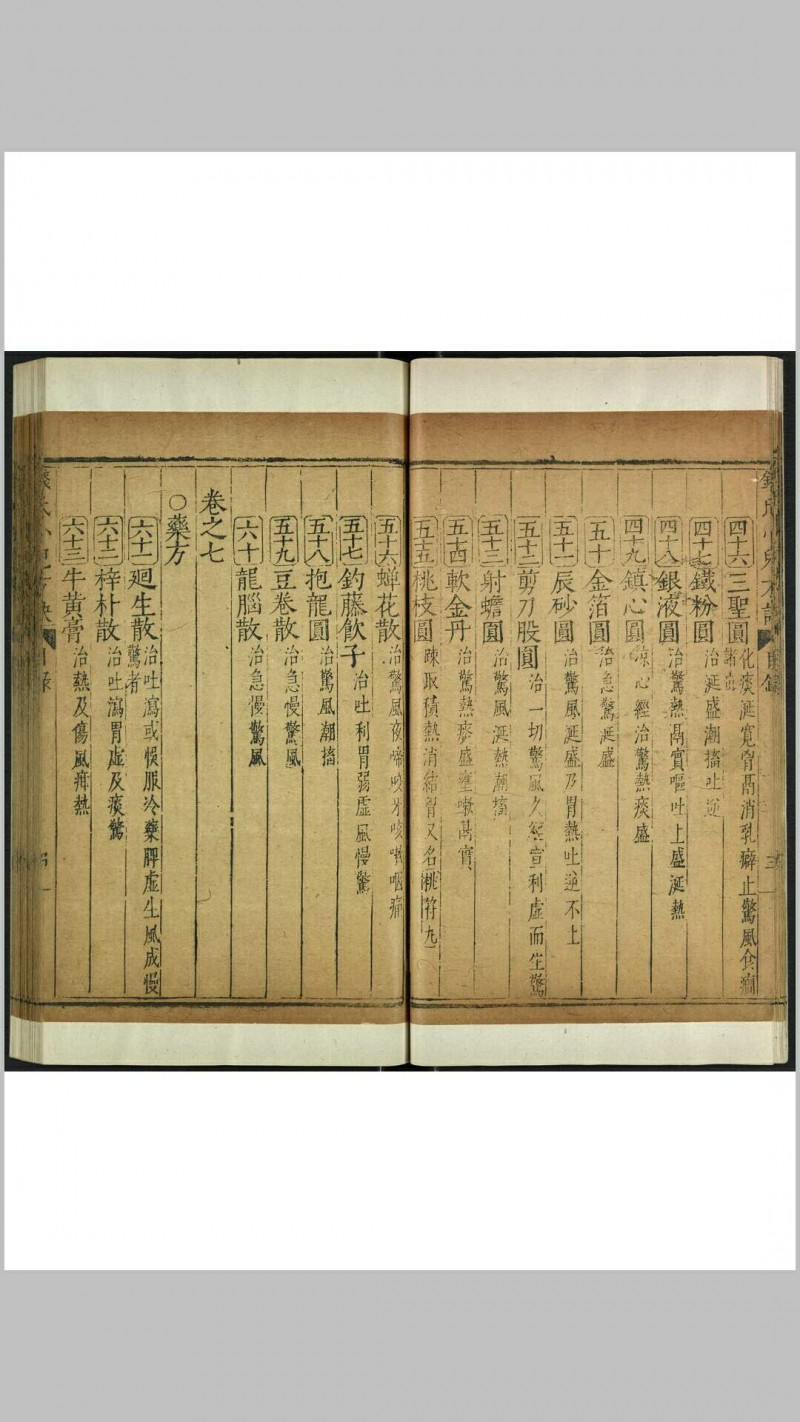 四十六三聖圓化痰涎寬胷鬲消乳癖止驚風食癎
諸
四十七鐵粉圓治涎盛潮搐吐逆
四十八銀液圓治驚熱鬲實嘔吐上盛涎熱
四十九鎮心圓凉心經治驚熱痰盛
五十金箔圓治急驚涎盛
五十一辰砂圓治驚風涎盛及胃熱吐逆不上
五十二剪刀股圓治一切驚風久經宣利虛而生驚
五十三射蟾圓治驚風涎熱潮搐
五十四軟金丹治驚熱痰盛壅嗽鬲實
五十五桃枝圓疎取積熱消結胷又名桃符丸
五十六蟬花散治驚風夜啼咬牙咳嗽咽痛
五十七釣藤飲子治吐利胃弱虛風慢驚
五十八抱龍圓治驚風潮搐
五十九豆卷散治急慢驚風
六十龍腦散治急慢驚風
卷之七
〇藥方
六十一廻生散治吐瀉或悞服冷藥脾虛生風成慢
驚者
六十二梓朴散治吐瀉胃虛及痰驚
六十三牛黃膏治熱及傷風疳熱